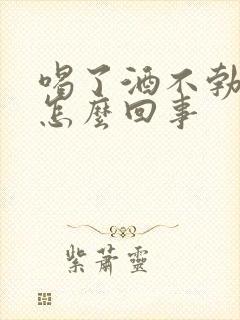 喝了酒不勃
怎麼回事
紫蕭靈